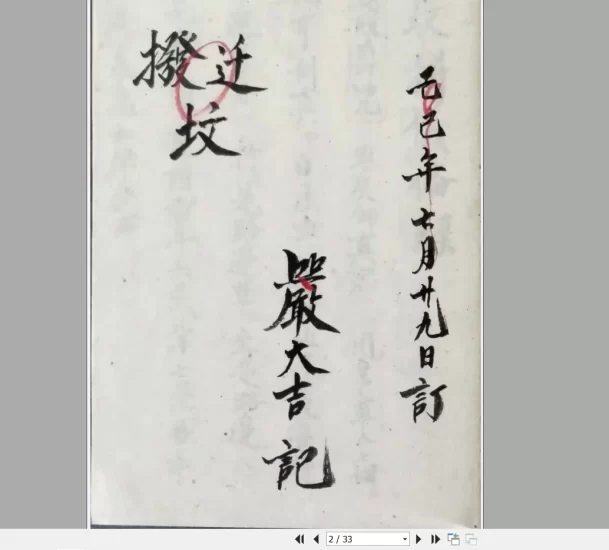 己巳年七月廿九日訂
嚴大吉記
迁撥
坟
2 / 33